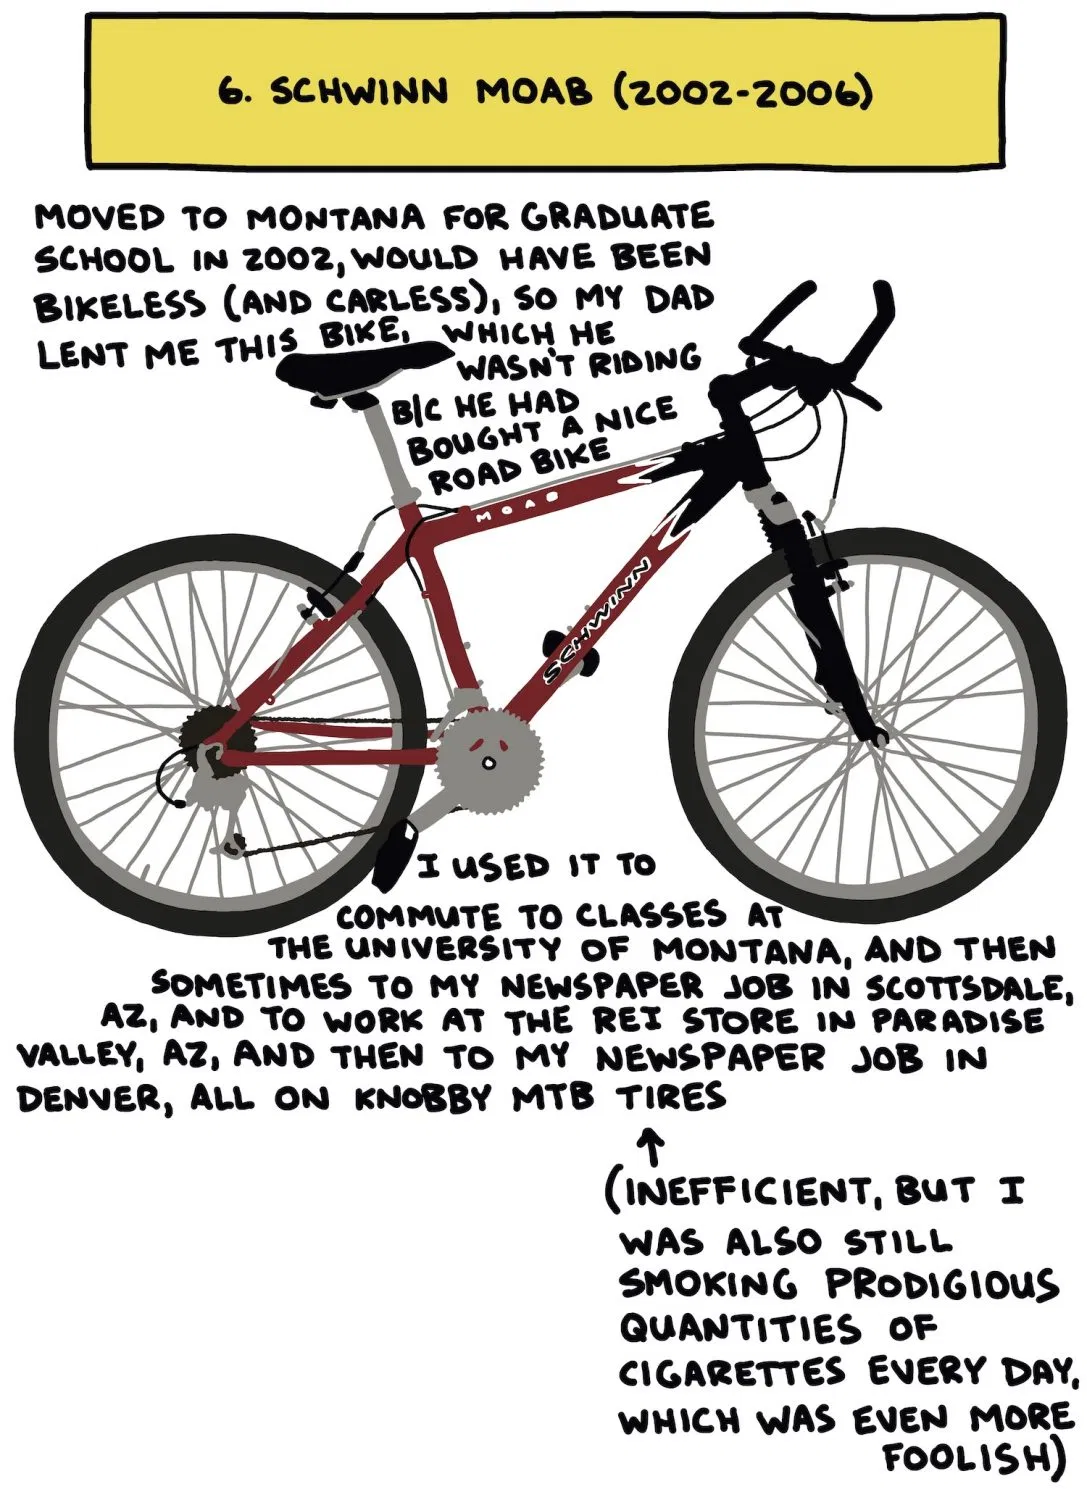 6. SCHWINN MOAB (2002-2006)
MOVED TO MONTANA FOR GRADUATE
SCHOOL IN 2002, WOULD HAVE BEEN
BIKELESS (AND CARLESS), SO MY DAD
LENT ME THIS BIKE, WHICH HE
WASN'T RIDING
B/C HE HAD
BOUGHT A NICE
ROAD BIKE
MOAB
SCHWINN
I USED IT TO
COMMUTE TO CLASSES AT
THE UNIVERSITY OF MONTANA, AND THEN
SOMETIMES TO MY NEWSPAPER JOB IN SCOTTSDALE,
AZ, AND TO WORK AT THE REI STORE IN PARADISE
VALLEY, AZ, AND THEN TO MY NEWSPAPER JOB IN
DENVER, ALL ON KNOBBY MTB TIRES
(INEFFICIENT, BUT I
WAS ALSO STILL
SMOKING PRODIGIOUS
QUANTITIES OF
CIGARETTES EVERY DAY,
WHICH WAS EVEN MORE
FOOLISH)